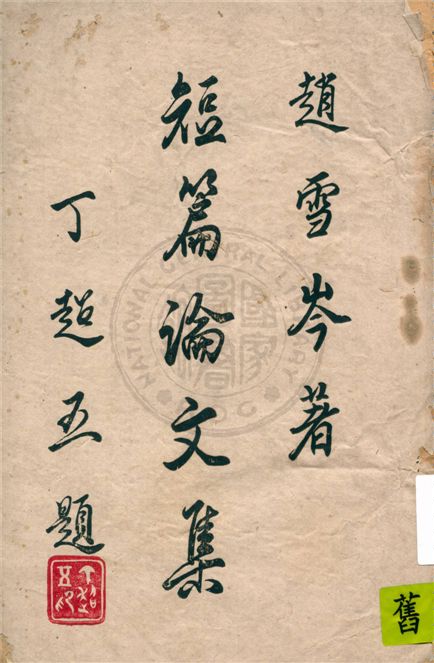 趙雪岑著
短篇論文集
丁超五題
丁超五印
舊
NATIONAL CENTRAL LIBRARY
國家圖書館